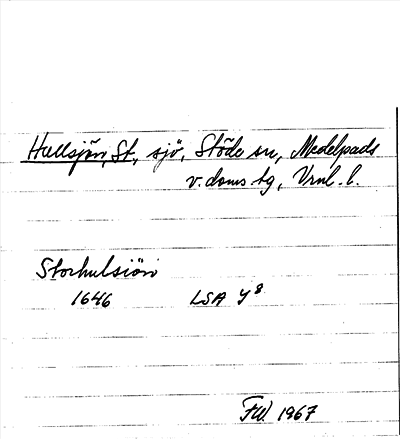 Hullsjön, St., sjö, Stöde sn, Medelpads
v. doms.tg, Vrnl. l.
Storhulsiön
1646 LSA Y 8
FW. 1967